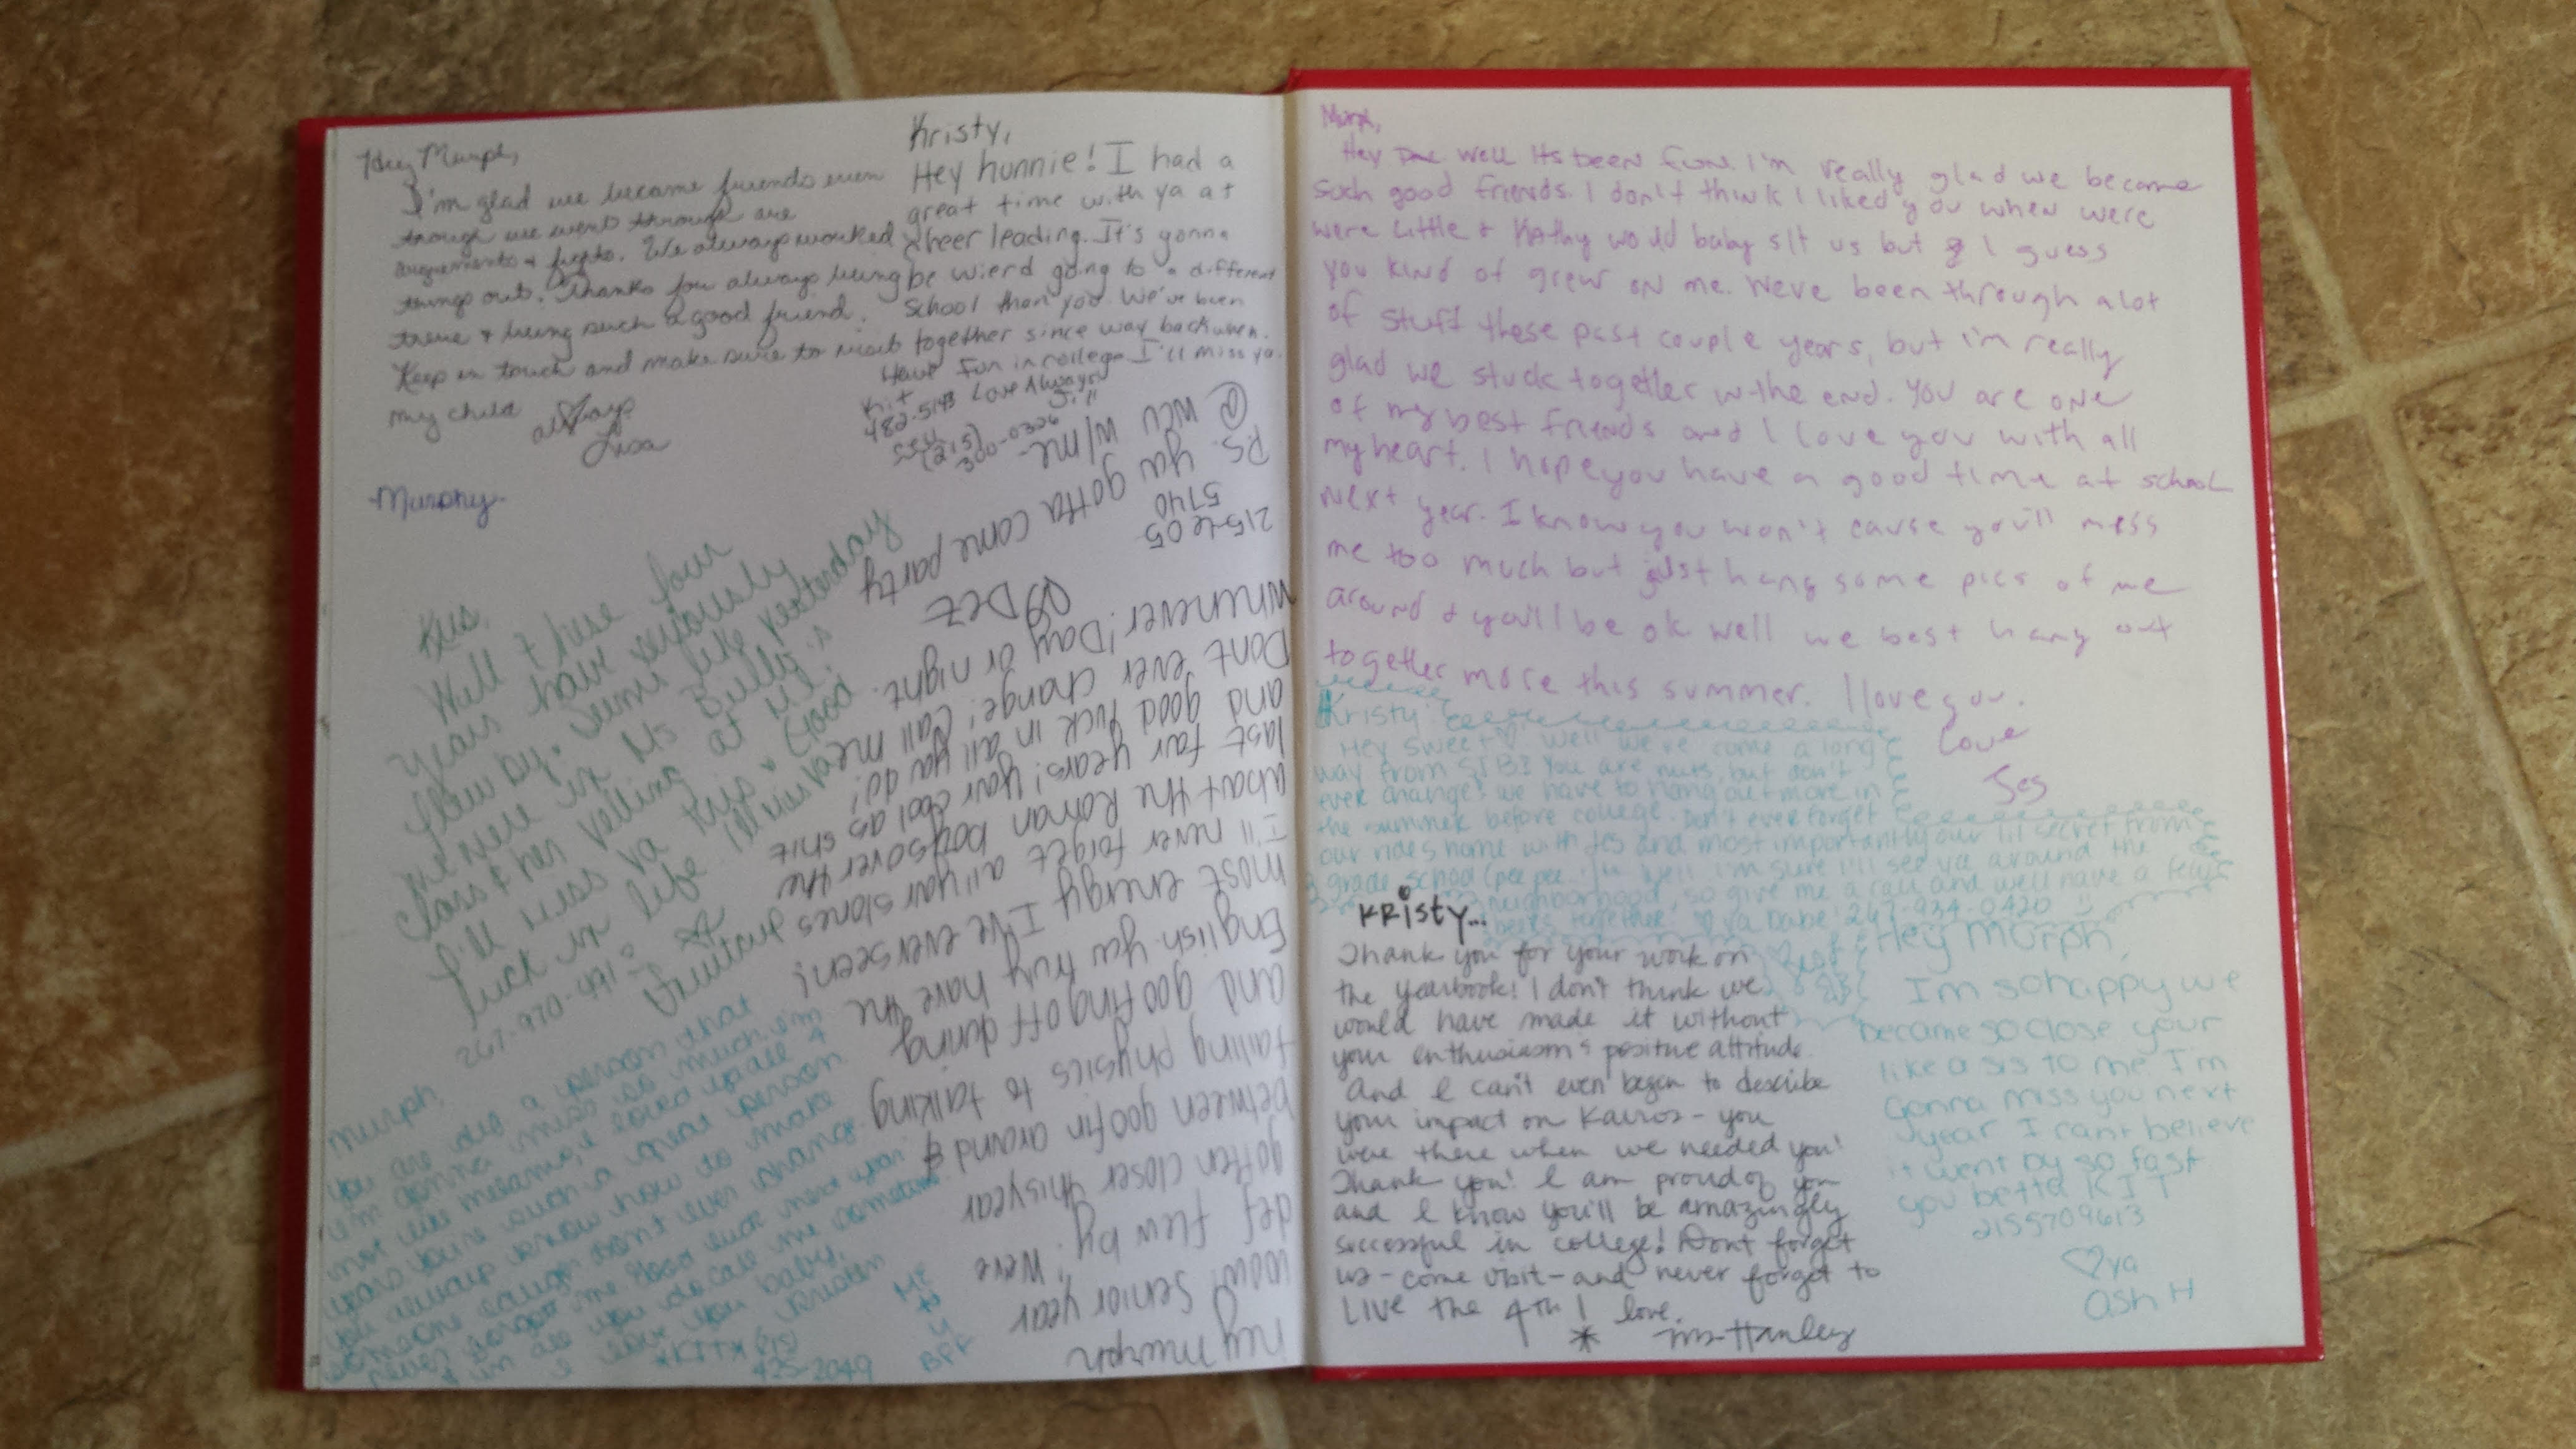 Hey Murph,
I'm glad we became friends even
though we went through are
arguements + fights. We always worked
things out. Thanks for always being
there + being such a good friend.
Keep in touch and make sure to visit
my child
always
Lisa
Kristy,
Hey hunnie! I had a
great time with ya at
cheerleading. It's gonna
be wierd going to a different
school than you. We've been
together since way back when.
Have fun in college I'll miss ya.
Love Always
Jill
-Murphy-
Kris,
Well these four
years have seriously
flew by. Seems like yesterday
we were in Ms Bully's
class + her yelling at us!
I'll miss ya this
luck in life
Murph,
You are def a person that
I'm gonna miss so much. I'm
not
years you're such a great person
you always know how to make
someone laugh don't ever change
never forget me Good luck next year
+ in all you do call me sometime
I love you baby,
*KIT* (215)
425-2049
ME
+
U
BFF
Hey Murph
Wow! Senior year
def flew by! Were
gotten closer this year
between goofin around &
failing physics to talking
and goofing off during
English. you truly have the
most energy I've ever seen!
I'll never forget all your stories
about the Roman boys over the
last far years! Your cool as shit
and good luck in all ya do!
Dont ever change! Call me
whenever! Day or night.
Dez
215-605
5740
P.S. ya gotta come party
@ WCU w/me-
Hey well its been fun. I'm really glad we became
such good friends. I don't think I liked you when were
were little + Kathy would baby sit us but I guess
you kind of grew on me. Weve been through alot
of stuff these past couple years, but i'm really
glad we stuck together in the end. You are one
of my best friends and I love you with all
my heart. I hope you have a good time at school
next year. I know you won't cause you'll miss
me too much but just hang some pics of me
around + you'll be ok well we best hang out
together more this summer. I love you.
Love
Jes
Kristy
Hey Sweet♡ well we've come a long
way from SIB! You are nuts, but don't
ever change! we have to hang out more in
the summer before college. Don't ever forget
our rides home with Jes and most importantly our lil secret from
grade school (pee pee well I'm sure I'll see ya around the
neighborhood, so give me a call and we'll have a few
beers together! ♡ ya babe! 267-934-0420
Kristy...
Thank you for your work on
the yearbook! I don't think we
would have made it without
your enthusiasm & positive attitude.
And I can't even begin to describe
your impact on Kairos - you
were there when we needed you!
Thank you! I am proud of you
and I know you'll be amazingly
successful in college! Dont forget
us - come visit - and never forget to
LIVE the 4th! love,
* Ms. Hanley
Hey Morph,
I'm so happy we
became so close your
like a sis to me I'm
Gonna miss you next
year I cant believe
it went by so fast
you betta KIT
2155709613
♡ ya
Ash H